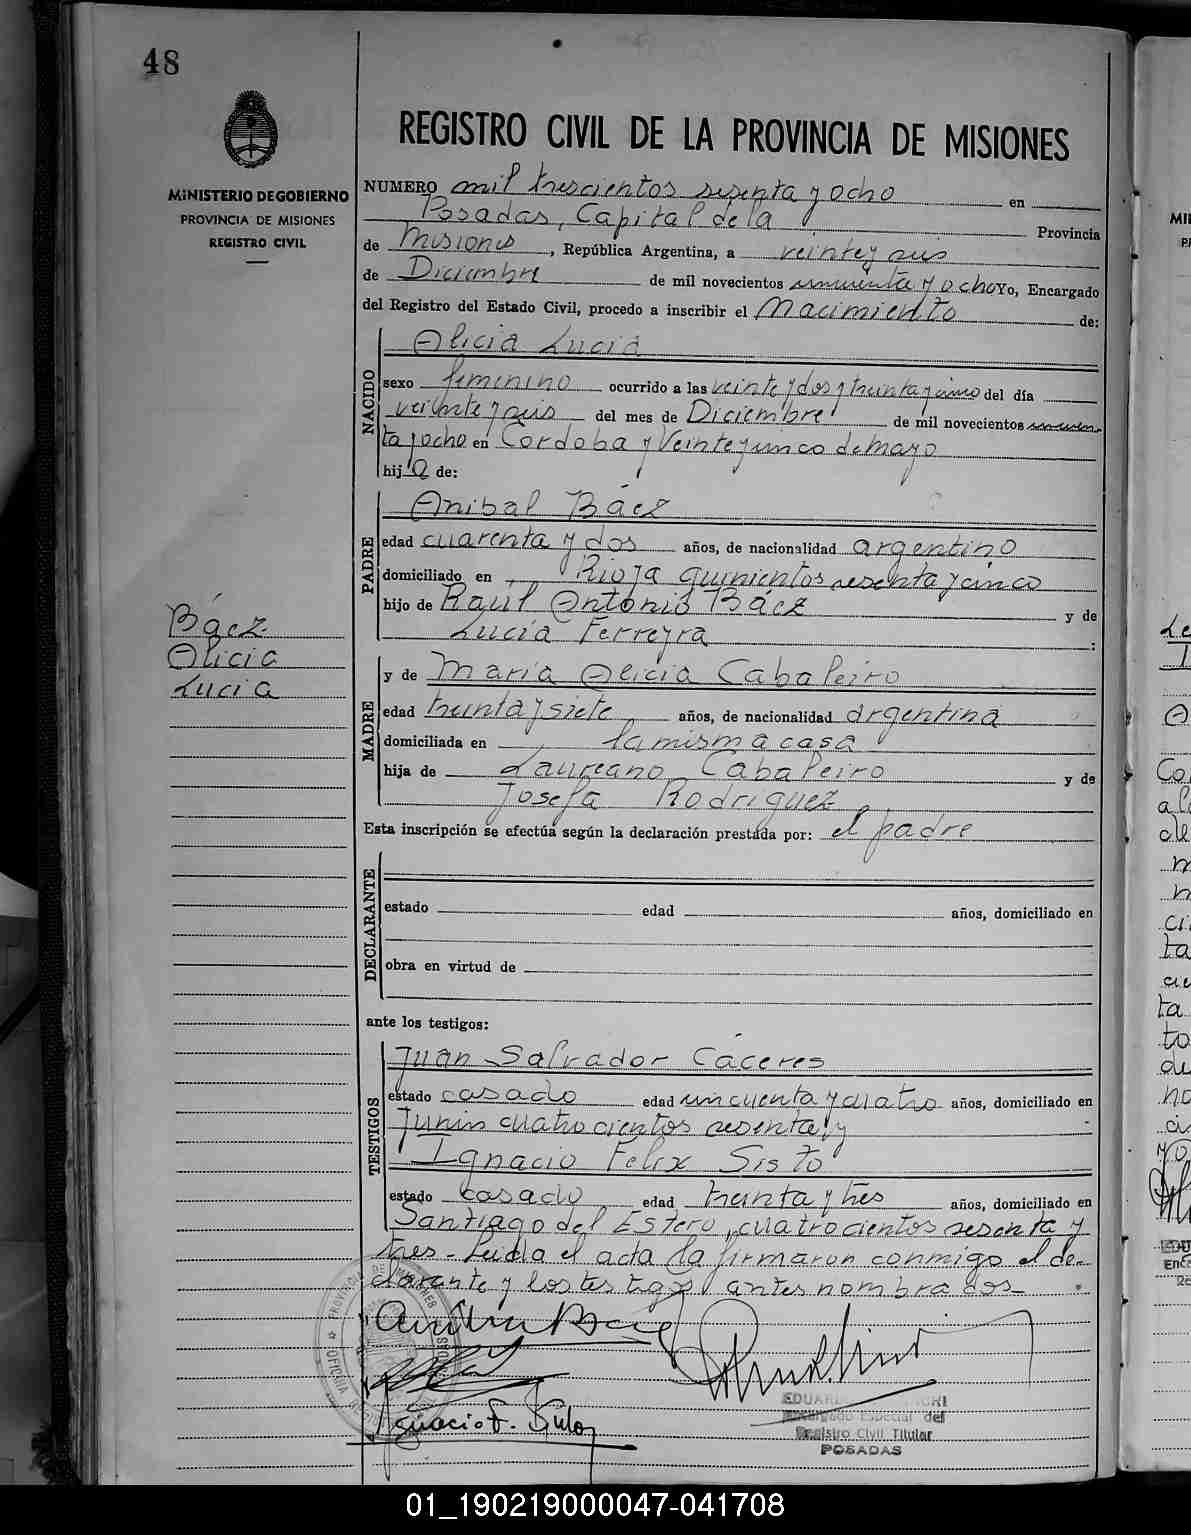 48
MINISTERIO DE GOBIERNO
PROVINCIA DE MISIONES
REGISTRO CIVIL
REGISTRO CIVIL DE LA PROVINCIA DE MISIONES
NUMERO mil trescientos sesenta y ocho en
Posadas, Capital de la Provincia
de Misiones, República Argentina, a veinte y seis
de Diciembre de mil novecientos cincuenta y ocho Yo, Encargado
del Registro del Estado Civil, procedo a inscribir el Nacimiento de:
NACIDO
Alicia Lucia
sexo femenino ocurrido a las veinte y dos y treinta y cinco del día
veinte y seis del mes de Diciembre de mil novecientos cincuen-
ta y ocho en Córdoba y Veinte y cinco de Mayo
hija de:
PADRE
Anibal Báez
edad cuarenta y dos años, de nacionalidad argentino
domiciliado en Rioja quinientos sesenta y cinco
hijo de Raúl Antonio Báez y de
Lucía Ferreyra :
Báez
Alicia
Lucia
MADRE
y de María Alicia Cabaleiro
edad treinta y siete años, de nacionalidad argentina
domiciliada en la misma casa
hija de Laureano Cabaleiro y de
Josefa Rodriguez
Esta inscripción se efectúa según la declaración prestada por: el padre
DECLARANTE
estado edad años, domiciliado en
obra en virtud de
ante los testigos:
TESTIGOS
Juan Salvador Cáceres
estado casado edad cincuenta y cuatro años, domiciliado en
Junin cuatrocientos sesenta, y
Ignacio Felix Sisto
estado casado edad treinta y tres años, domiciliado en
Santiago del Estero, cuatrocientos sesenta y
tres - Leida el acta la firmaron conmigo el de-
clarante y los testigos antes nombrados -
Ignacio F.
Encargado Especial del
Registro Civil Titular
POSADAS
01_190219000047-041708